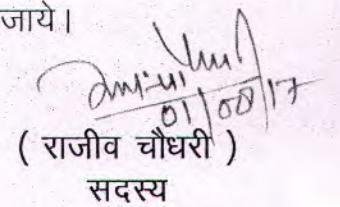 जाये।
01/08/17
( राजीव चौधरी )
सदस्य